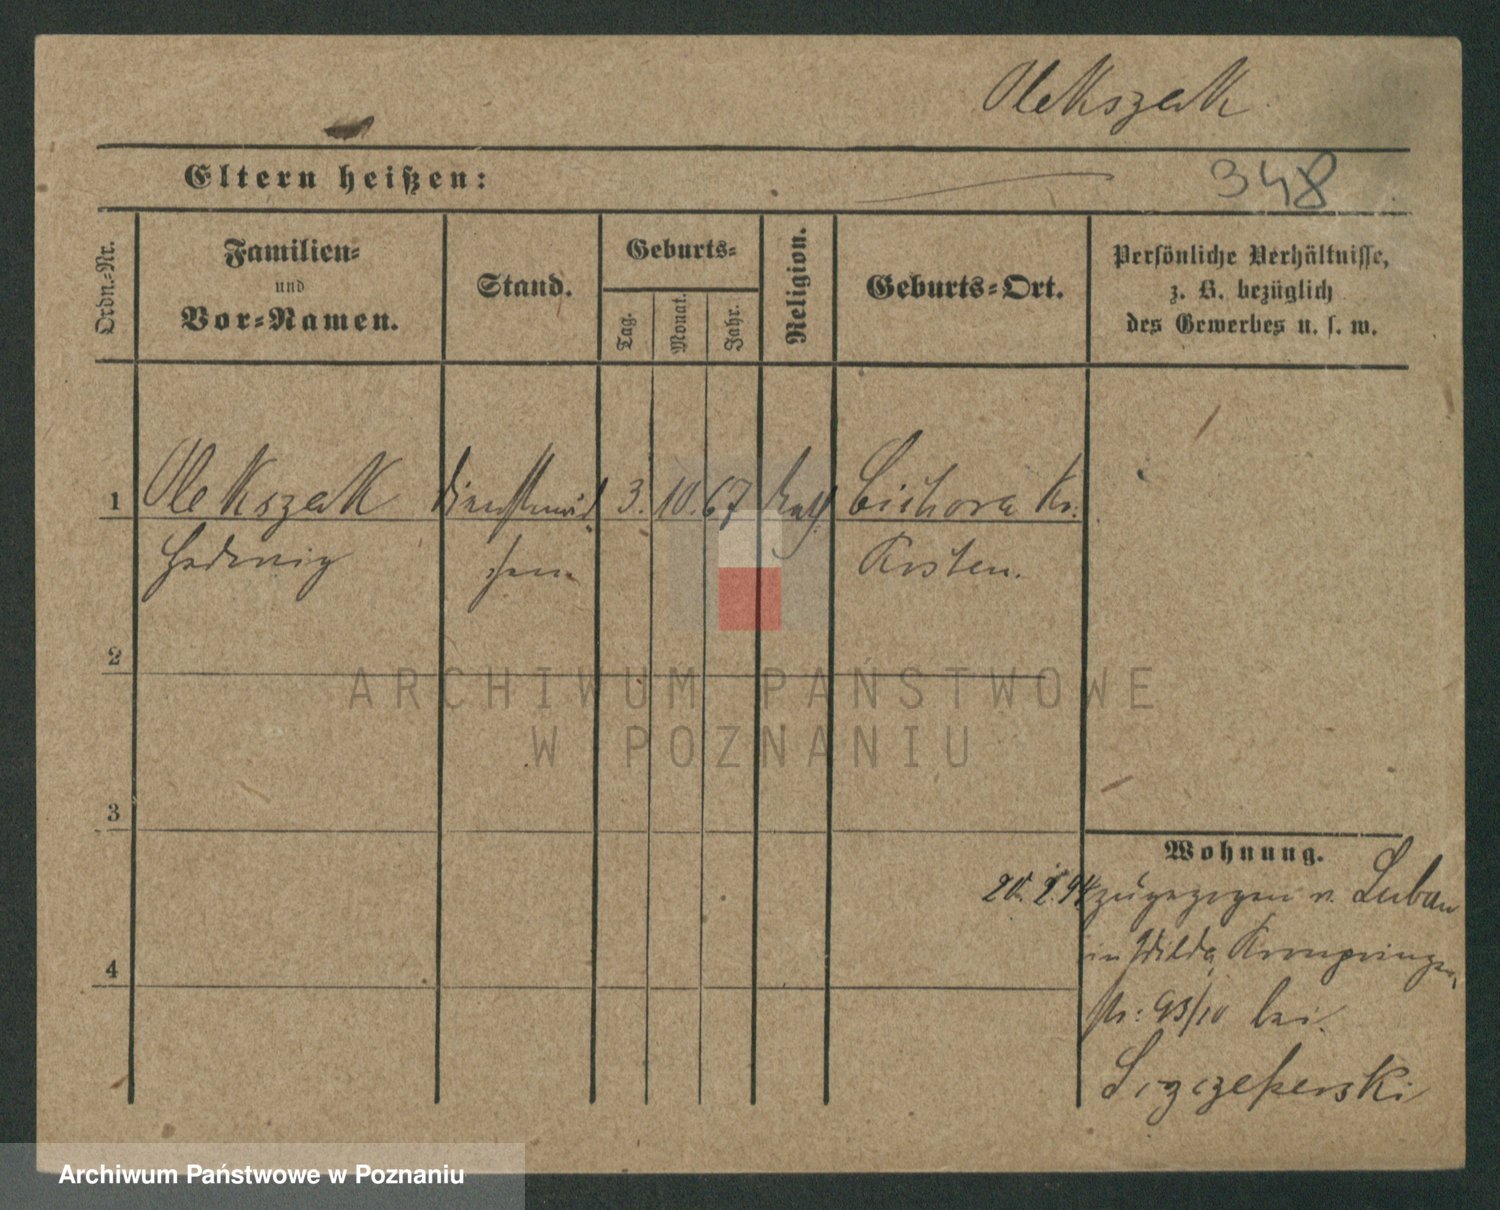 Olekszak
Eltern heißen:
348
Ordn.-Nr.
Familien-
und
Vor-Namen.
Stand.
Geburts-
Tag.
Monat.
Jahr.
Religion.
Geburts-Ort.
Persönliche Verhältnisse,
z. B. bezüglich
des Gewerbes u. s. w.
1 Olekszak 3. 10. 67 kath Cichora Kr.
Hedwig Kosten.
2
ARCHIWUM PAŃSTWOWE
W POZNANIU
3
Wohnung.
20. 2. 94 zugezogen v. Luban
in Wilda, Kronprinzen
str: 93/10 bei
4
Archiwum Państwowe w Poznaniu